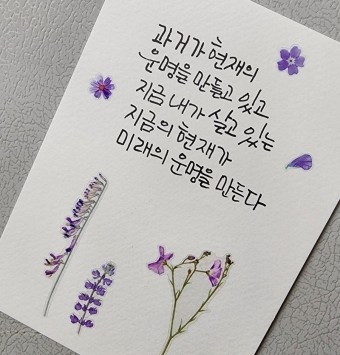 과거가 현재의
운명을 만들고 있고
지금 내가 살고 있는
지금의 현재가
미래의 운명을 만든다